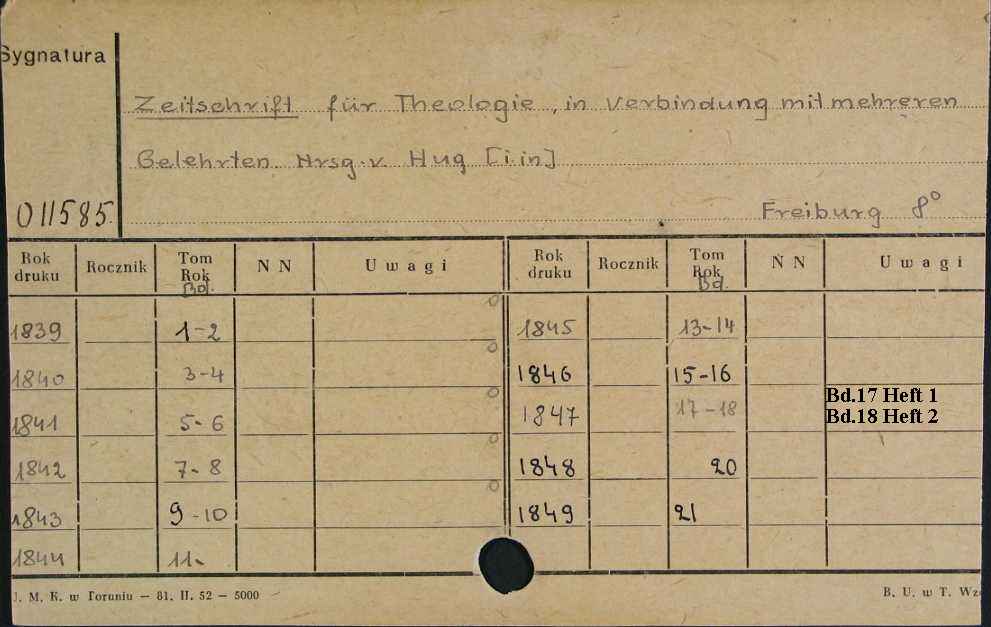 Sygnatura
Zeitschrift für Theologie, in Verbindung mit mehreren
Gelehrten. Hrsg. v. Hug [i in]
011585. Freiburg 8°
Rok druku Rocznik Tom Rok Bd. N N Uwagi Rok druku Rocznik Tom Rok Bd. N N Uwagi
1839 1-2 1845 13-14
1840 3-4 1846 15-16
1841 5-6 1847 17-18 Bd.17 Heft 1
Bd.18 Heft 2
1842 7-8 1848 20
1843 9-10 1849 21
1844 11-
J. M. K. w Toruniu — 81. II. 52 — 5000 B. U. w T.